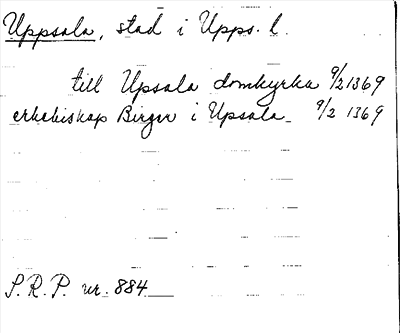 Uppsala, stad i Upps. l.
till Upsala domkyrka 9/2 1369
erkebiskop Birger i Upsala. 9/2 1369
S.R.P. nr. 884